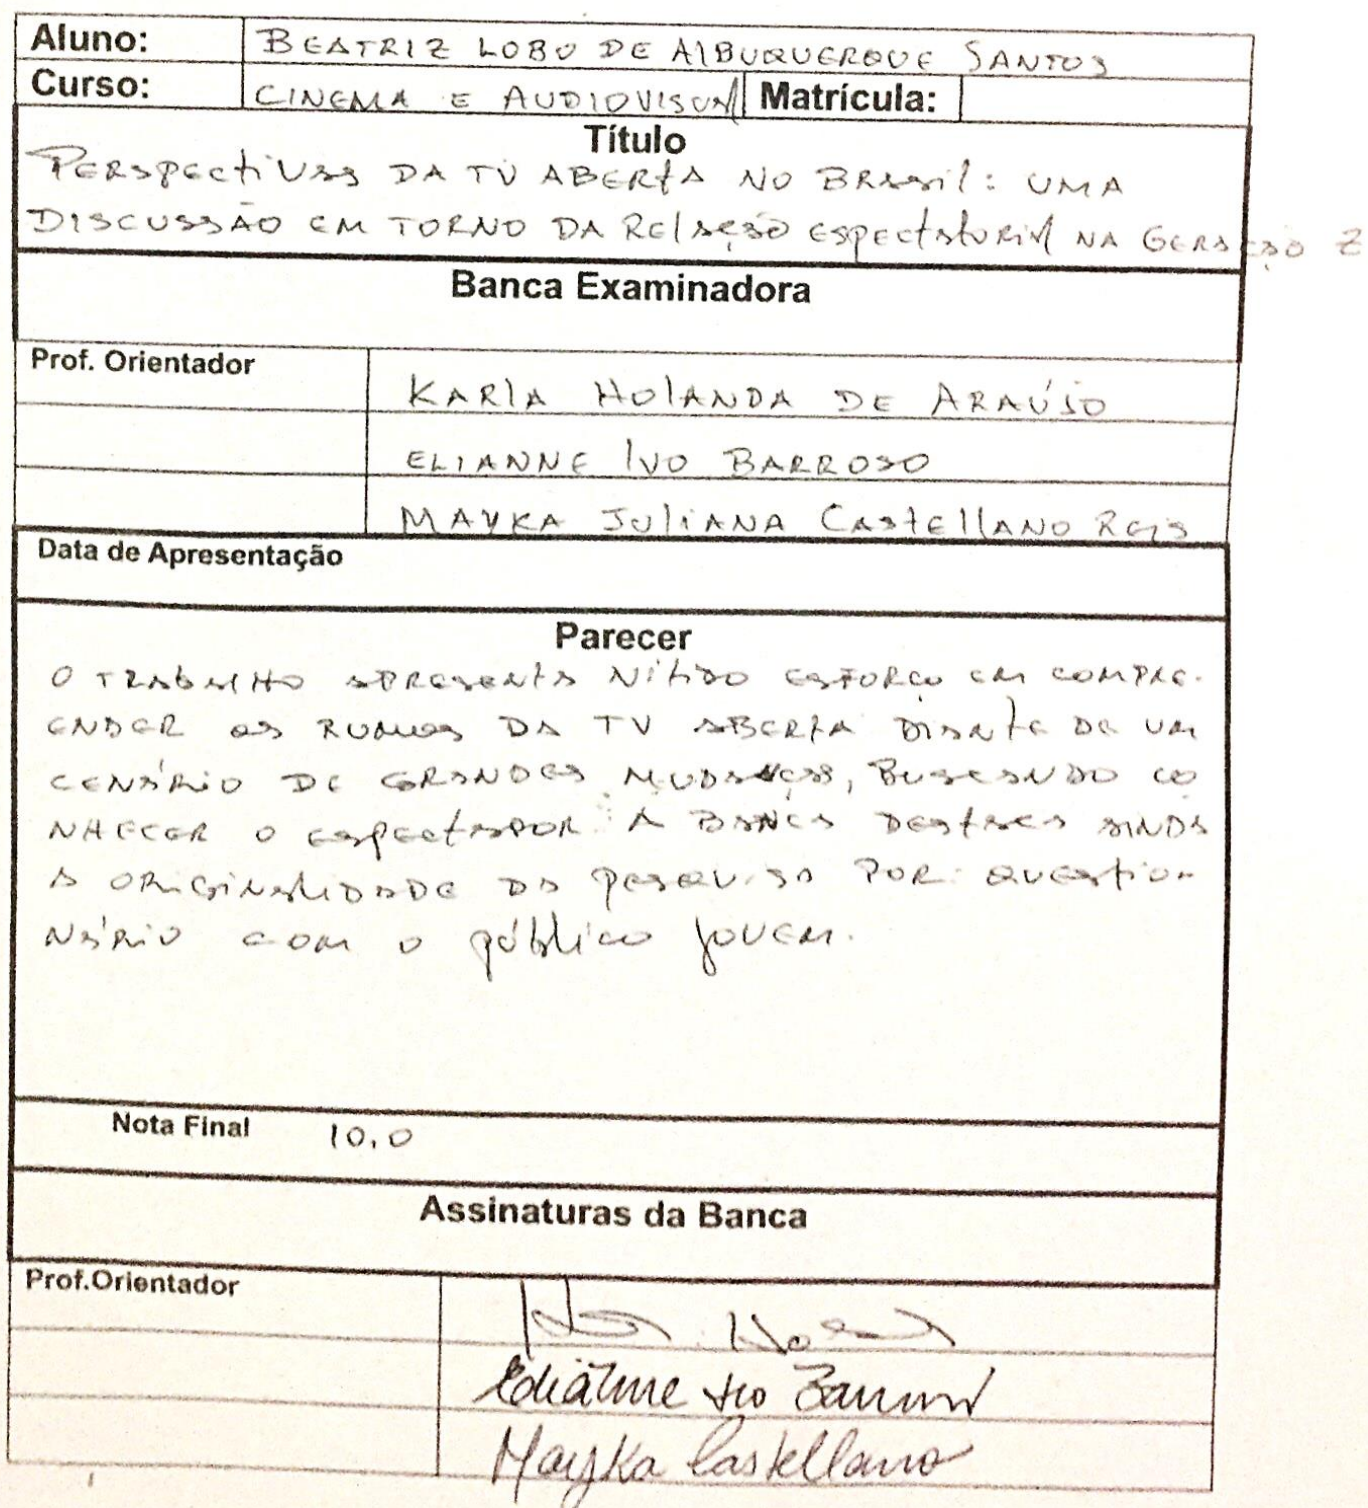 Aluno: BEATRIZ LOBO DE AlBUQUERQUE SANTOS
Curso: CINEMA E AUDIOVISUAl Matrícula:
Título
PERSPECtiVAS DA TV ABERtA NO BRASil: UMA
DISCUSSÃO EM TORNO DA RElAÇÃO ESPECtAtORIAl NA GERAÇÃO Z
Banca Examinadora
Prof. Orientador KARlA HOlANDA DE ARAÚJO
ELIANNE IVO BARROSO
MAYKA JUliANA CAStEllANO REIS
Data de Apresentação
Parecer
O TRABAlHO APRESENtA NÍtIDO ESFORÇO EM COMPRE-
ENDER OS RUMOS DA TV ABERtA DIANtE DE UM
CENÁRIO DE GRANDES MUDANÇAS, BUSCANDO CO
NHECER O ESPECtADOR. A BANCA DEStACA AINDA
A ORIGINAlIDADE DA PESQUISA POR QUEStIO-
NÁRIO COM O público jOVEM.
Nota Final 10,0
Assinaturas da Banca
Prof.Orientador
Elianne Ivo Barroso
Mayka Castellano